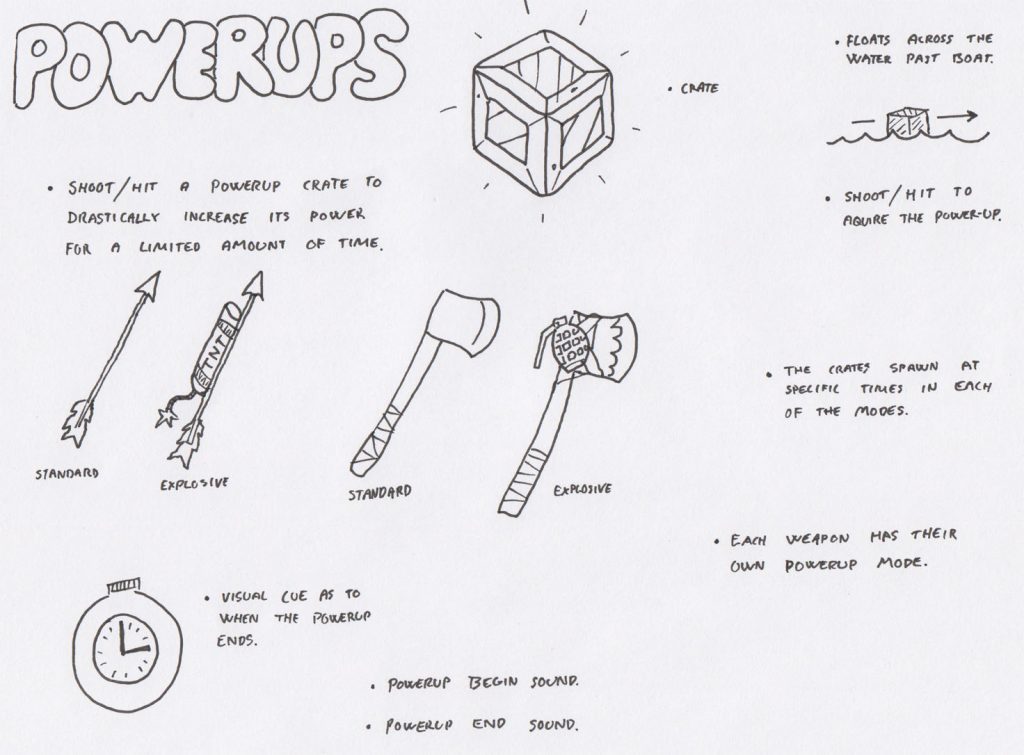 POWERUPS
• CRATE
• FLOATS ACROSS THE
WATER PAST BOAT.
• SHOOT/HIT A POWERUP CRATE TO
DRASTICALLY INCREASE ITS POWER
FOR A LIMITED AMOUNT OF TIME.
• SHOOT/HIT TO
AQUIRE THE POWER-UP.
TNT
STANDARD
EXPLOSIVE
STANDARD
EXPLOSIVE
• THE CRATES SPAWN AT
SPECIFIC TIMES IN EACH
OF THE MODES.
• EACH WEAPON HAS THEIR
OWN POWERUP MODE.
• VISUAL CUE AS TO
WHEN THE POWERUP
ENDS.
• POWERUP BEGIN SOUND.
• POWERUP END SOUND.